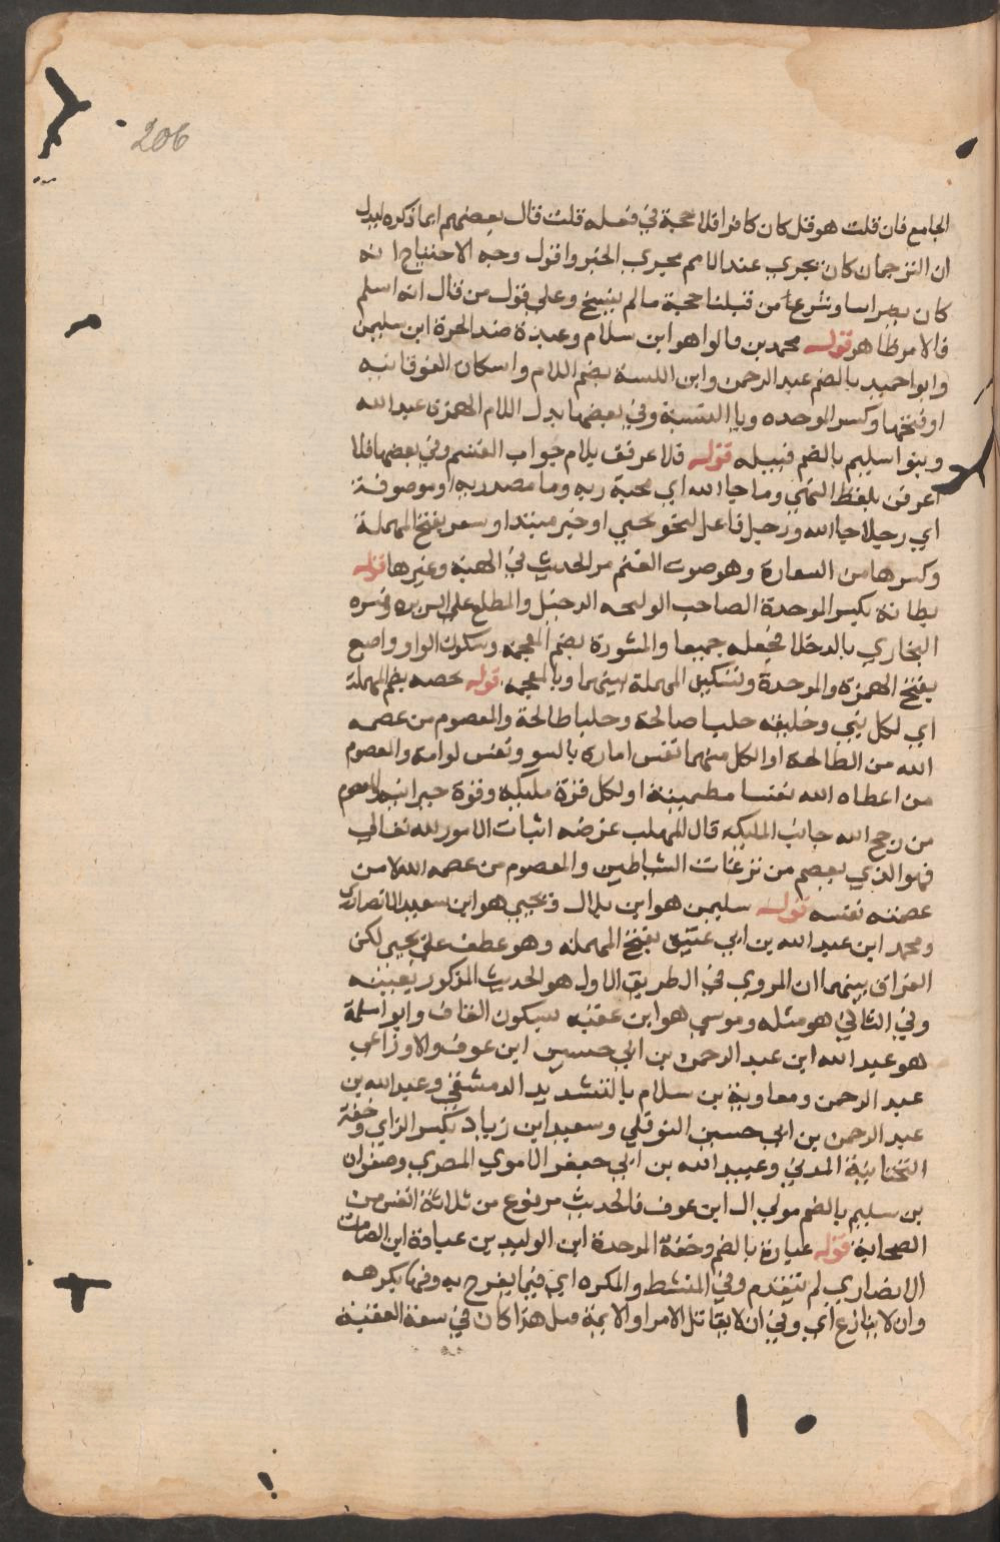 206
الجامع فان قلت هو قل كان كافرا فلا حجة في فعله قلت قال بعضهم انما ذكره ليدل
ان الترجمان كان يجري عند الامم مجري الخبر واقول وجه الاحتجاج انه
كان نصرانيا وشرع من قبلنا حجة مالم ينسخ وعلي قول من قال انه اسلم
فالامر ظاهر قوله محمد بن قالوا هو ابن سلام وعبدة ضد الحرة ابن سليمن
وابو احميد بالضم عبد الرحمن وابن اللتبية بضم اللام واسكان الفوقانيه
او فتحها وكسر الموحده ويا النسبة وفي بعضها بدل اللام الهمزة عبد الله
وبنو اسليم بالضم قبيله قوله فلاعرفن بلام جواب القسم وفي بعضها فلا
اعرفن بلفظ النهي وما جا الله اي محبة ربه وما مصدريه او موصوفة
اي رجلا جا الله ورجل فاعل لنحو يجي او خبر مبتدا وتيعر بفتح المهملة
وكسرها من اليعارة وهو صوت الغنم مر الحديث في الهبة وغيرها قوله
بطانة بكسر الموحدة الصاحب الوليجه الدخيل والمطلع على السريره وفسره
البخاري بالدخلا فجعله جمعا والمشورة بضم المعجمة وسكون الواو واصبغ
بفتح الهمزة والموحدة وتسكين المهملة بينهما وبالمعجمه قوله تحضه بضم المهملة
اي لكل نبي وخليفه جلسا صالحة وجلسا طالحة والمعصوم من عصمه
الله من الطالحة او الكل منهما نفس امارة بالسو ونفس لوامه والمعصوم
من اعطاه الله نفسا مطمينة او لكل قوة ملكيه وقوة حيوانيه والمعصوم
من رجح الله جانب الملكيه قال المهلب غرضه اثبات الامور لله تعالي
فهو الذي يعصم من نزغات الشياطين والمعصوم من عصمه الله لا من
عصمته نفسه قوله سليمن هو ابن بلال ويحيي هو ابن سعيد الانصاري
ومحمد ابن عبد الله بن ابي عتيق بفتح المهمله وهو عطف علي يحيي لكن
الفرق بينهما ان المروي في الطريق الاول هو الحديث المذكور بعينه
وفي الثاني هو مثله وموسي هو ابن عقبه بسكون القاف وابو اسلمة
هو عبد الله ابن عبد الرحمن بن ابي حسين ابن عوف والاوزاعي
عبد الرحمن ومعاوية بن سلام بالتشديد الدمشقي وعبد الله بن
عبد الرحمن بن ابي حسين النوفلي وسعيد ابن زياد بكسر الزاي وخفة
التحتانية المدني وعبيد الله بن ابي جعفر الاموي المصري وصفوان
بن سليم بالضم مولي ال ابن عوف فالحديث مرفوع من ثلاثة انفس من
الصحابة قوله عبادة بالضم وخفة الموحدة ابن الوليد بن عبادة ابن الصامت
الانصاري لم يتقدم وفي المنشط والمكره اي فيما يفرح به وفيما يكرهه
وان لا ينازع اي وفي ان لا يقاتل الامرا والايمة ومثل هذا كان في بيعة العقبة